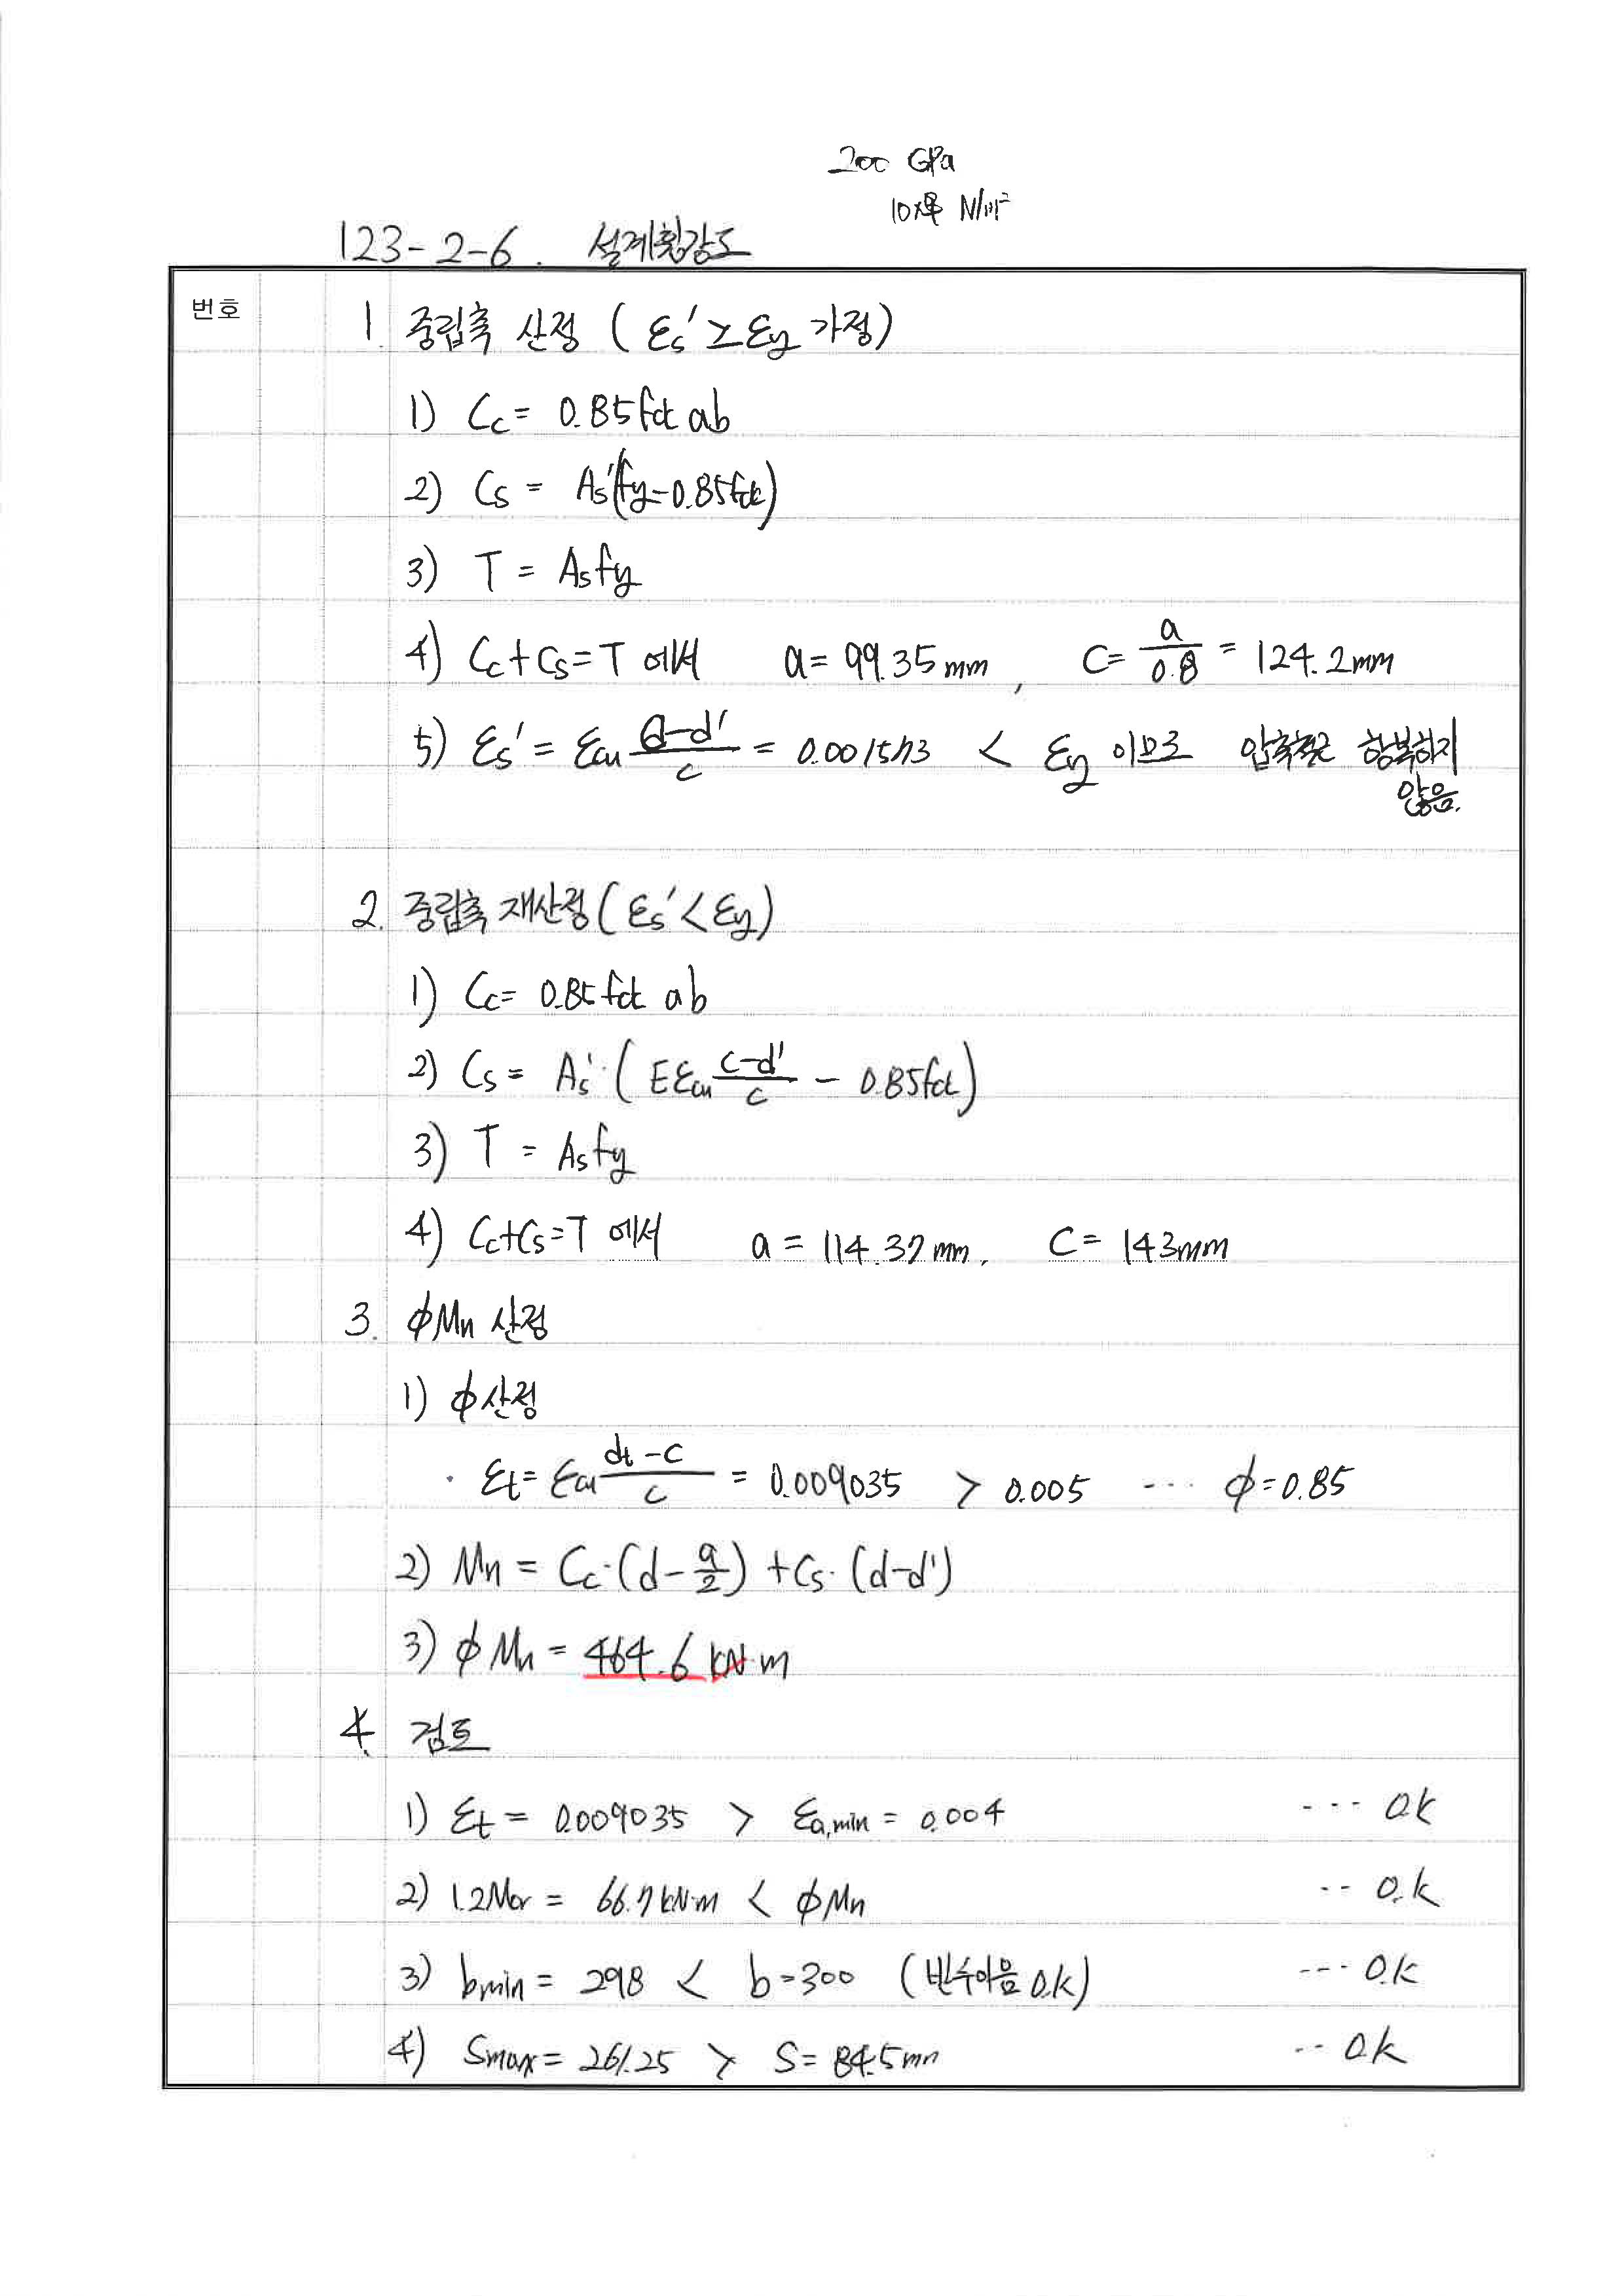 200 GPa
N/m²
123-2-6. 설계휨강도
번호
1. 중립축 산정 ( εs' ≥ εy 가정)
1) Cc = 0.85fck ab
2) Cs = As'(fy-0.85fck)
3) T = Asfy
4) Cc+Cs=T 에서 a= 99.35mm, C= a/0.8 = 124.2mm
5) εs' = εcu d-d'/c = < εy 이므로 압축측은 항복하지
않음.
2. 중립축 재산정 ( εs' < εy)
1) Cc= 0.85 fck ab
2) Cs = As'·( Eεcu c-d'/c - 0.85fck)
3) T = Asfy
4) Cc+Cs=T 에서 a = 114.37mm, C= 143mm
3. φMn 산정
1) φ산정
· εt= εcu dt-c/c = 0.009035 > 0.005 ··· φ=0.85
2) Mn = Cc·(d-a/2) +Cs·(d-d')
3) φMn = 464.6 kN·m
4. 검토
1) εt = 0.009035 > εa,min = 0.004 --- O.K
2) 1.2Mcr = 66.7kN·m < φMn -- O.K
3) bmin = 298 < b=300 (반수이음 O.K) --- O.K
4) Smax= 261.25 > S= 84.5mm -- O.K